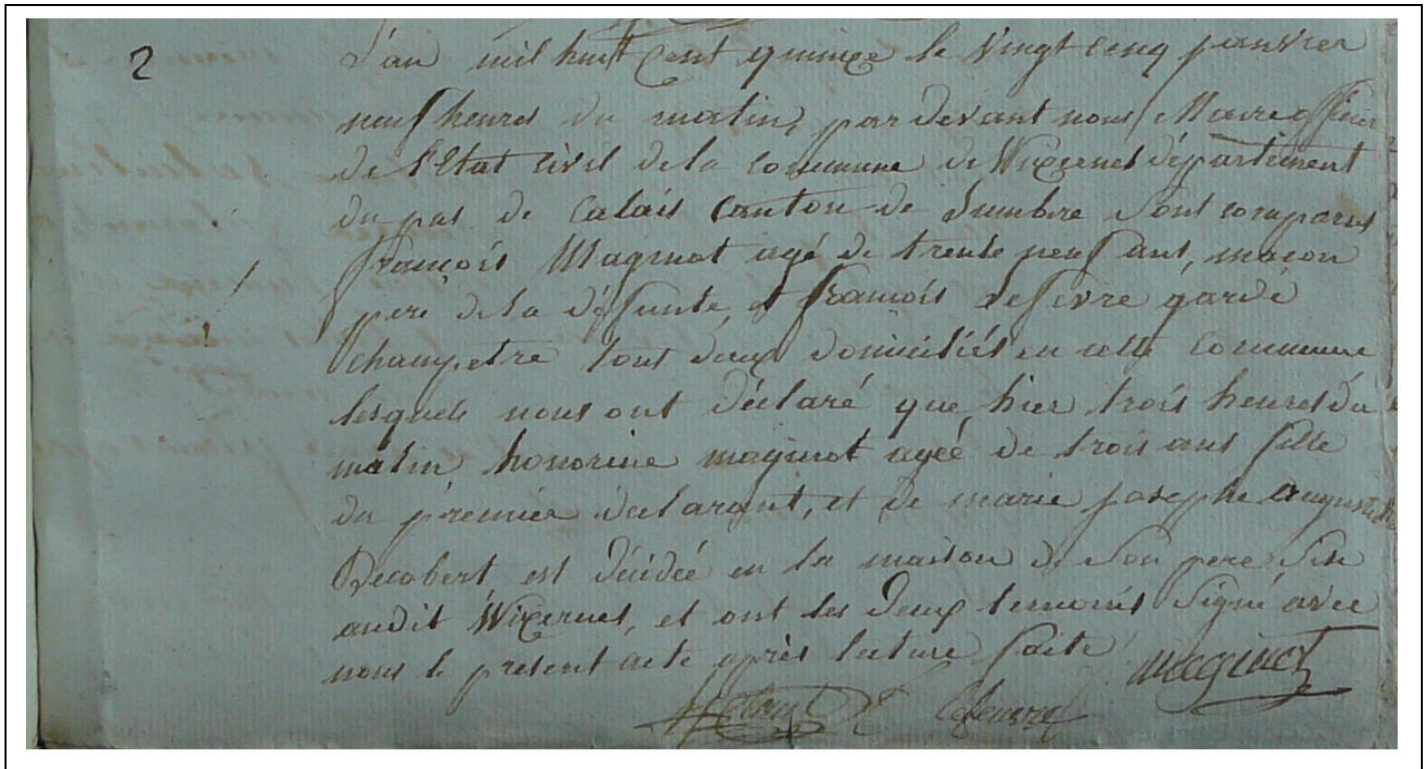 2
L'an mil huit cent quinze le vingt cinq janvier
neuf heures du matin, par devant nous Maire officier
de l'Etat civil de la commune de Wizernes département
du pas de Calais canton de Lumbre sont comparus
françois Maginot agé de trente neuf ans, macon
pere de la défunte, et françois Lefevre garde
champetre tout deux domiciliés en cette commune
lesquels nous ont déclaré que hier trois heures du
matin, honorine maginot agée de trois ans fille
du premier declarant, et de marie josephe augustine
Decobert, est décidée en la maison de son pere sise
audit Wizernes, et ont les deux temoins signé avec
nous le present acte après lecture faite
maginot
Lefevre